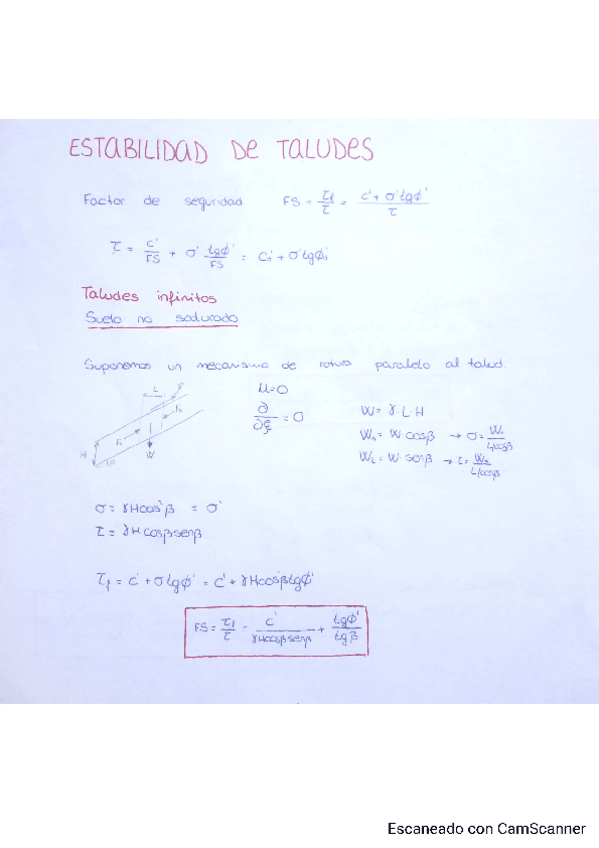 ESTABILIDAD DE TALUDES
Factor de seguridad FS = τf/τ = (c' + σ' tgϕ')/τ
τ = c'/FS + σ' tgϕ'/FS = Co' + σ' tgϕo'
Taludes infinitos
Suelo no saturado
Suponemos un mecanismo de rotura paralelo al talud.
L
H
W
β
u=0
∂/∂ξ = 0
W = γ·L·H
Wn = W·cosβ → σ = Wn/(L/cosβ)
Wt = W·senβ → τ = Wt/(L/cosβ)
σ = γHcos²β = σ'
τ = γHcosβsenβ
τf = c' + σtgϕ' = c' + γHcos²βtgϕ'
FS = τf/τ = c'/(γHcosβsenβ) + tgϕ'/tgβ
Escaneado con CamScanner